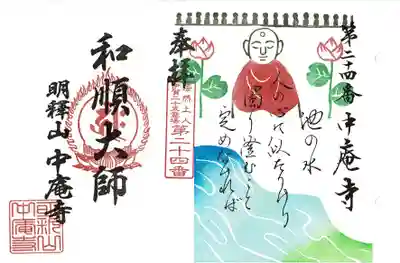 第二十四番 中庵寺
池の水
人の心に似たりけり
濁り澄むこと
定めなければ
奉拝
法然上人
第二十四番
和順大師
明釋山 中庵寺